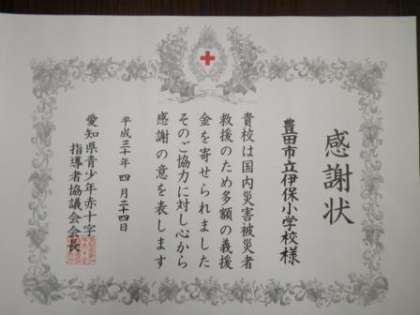 感謝状
豊田市立伊保小学校様
貴校は国内災害被災者
救援のため多額の義援
金を寄せられました
そのご協力に対し心から
感謝の意を表します
平成三十年四月二十四日
愛知県青少年赤十字
指導者協議会会長